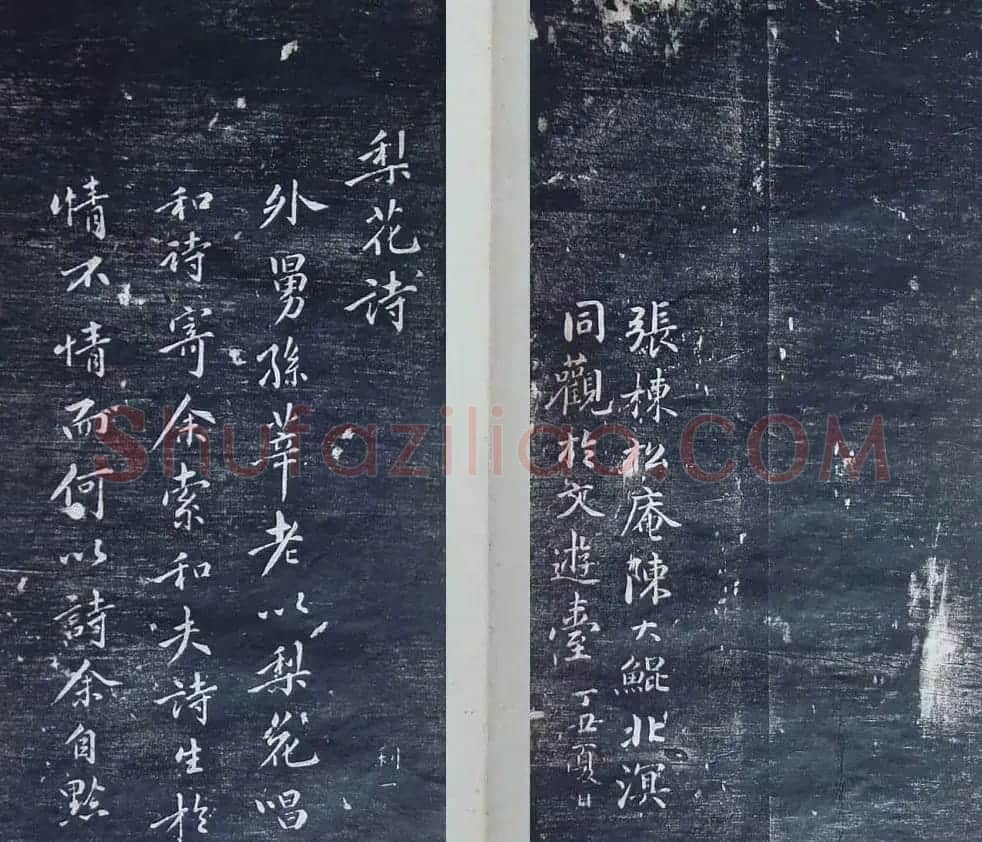 張棟松庵陳大鯤北溟
同觀於文遊臺 丁丑夏日
梨花詩
外舅孫莘老以梨花唱
和詩寄余索和夫詩生於
情不情而何以詩余自黔
利一
Shufaziliao.COM